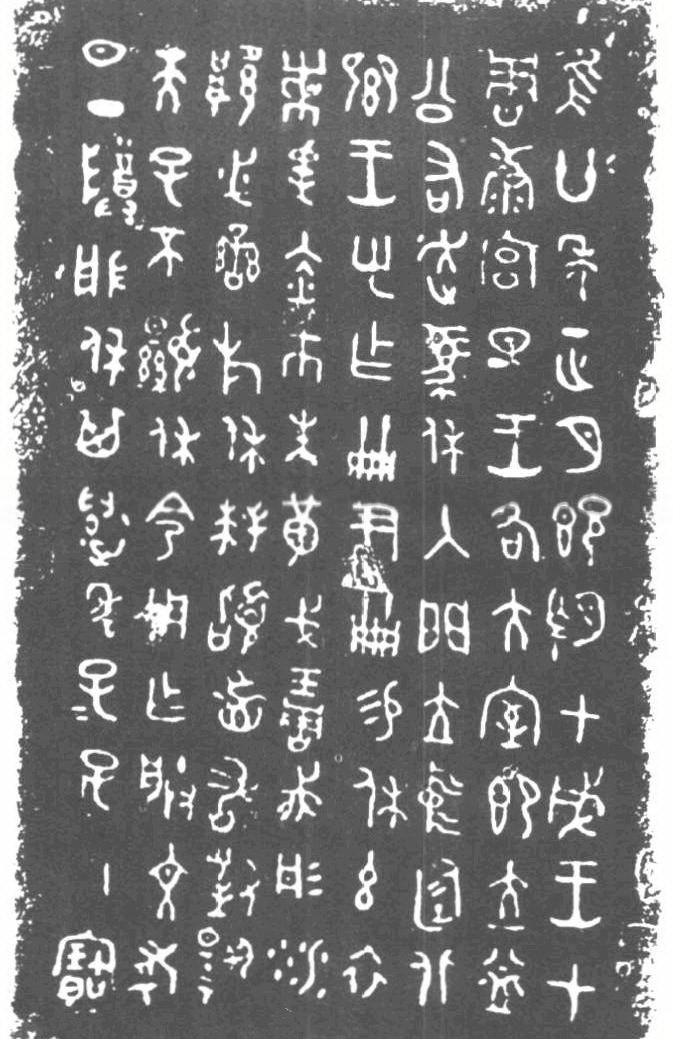 隹廿年正月既望甲戌王才
周康宮旦王各大室即立益
公右走馬休入門立中廷北
鄉王乎乍冊尹冊易休玄衣
黹屯赤巿朱黃戈琱胾彤沙
厚柲䜌㫃休拜稽首敢對揚
天子不顯休令用乍朕文考
日丁尊般休其萬年子孫永寶